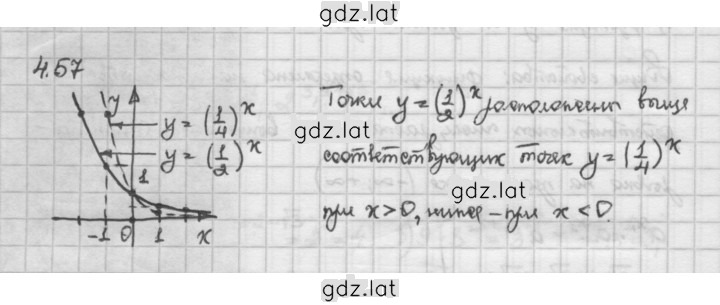 gdz.lat
4.57
y
y = (1/4)^x
y = (1/2)^x
1
-1 0 1 x
Точки y = (1/2)^x расположены выше
gdz.lat
соответствующих точек y = (1/4)^x
gdz.lat
при x > 0, ниже - при x < 0.
gdz.lat